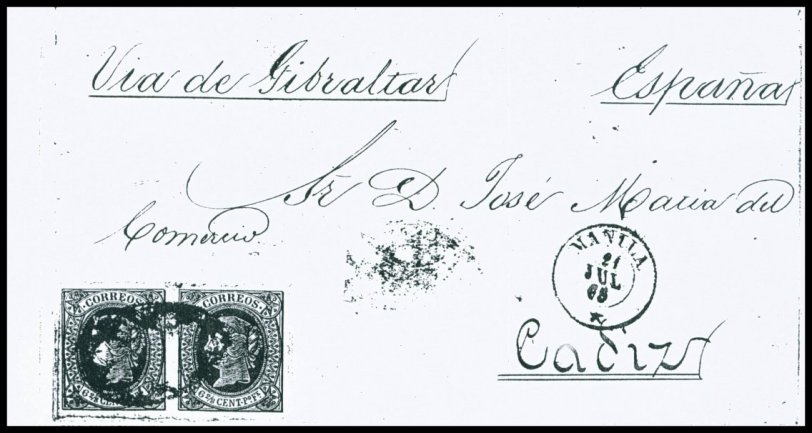 Via de Gibraltar España
Sr. D. José Maria del
Comercio
MANILA
21
JUL
65
Cadiz
CORREOS CORREOS
6 2/8 CENT. 6 2/8 CENT. Po. Fe.